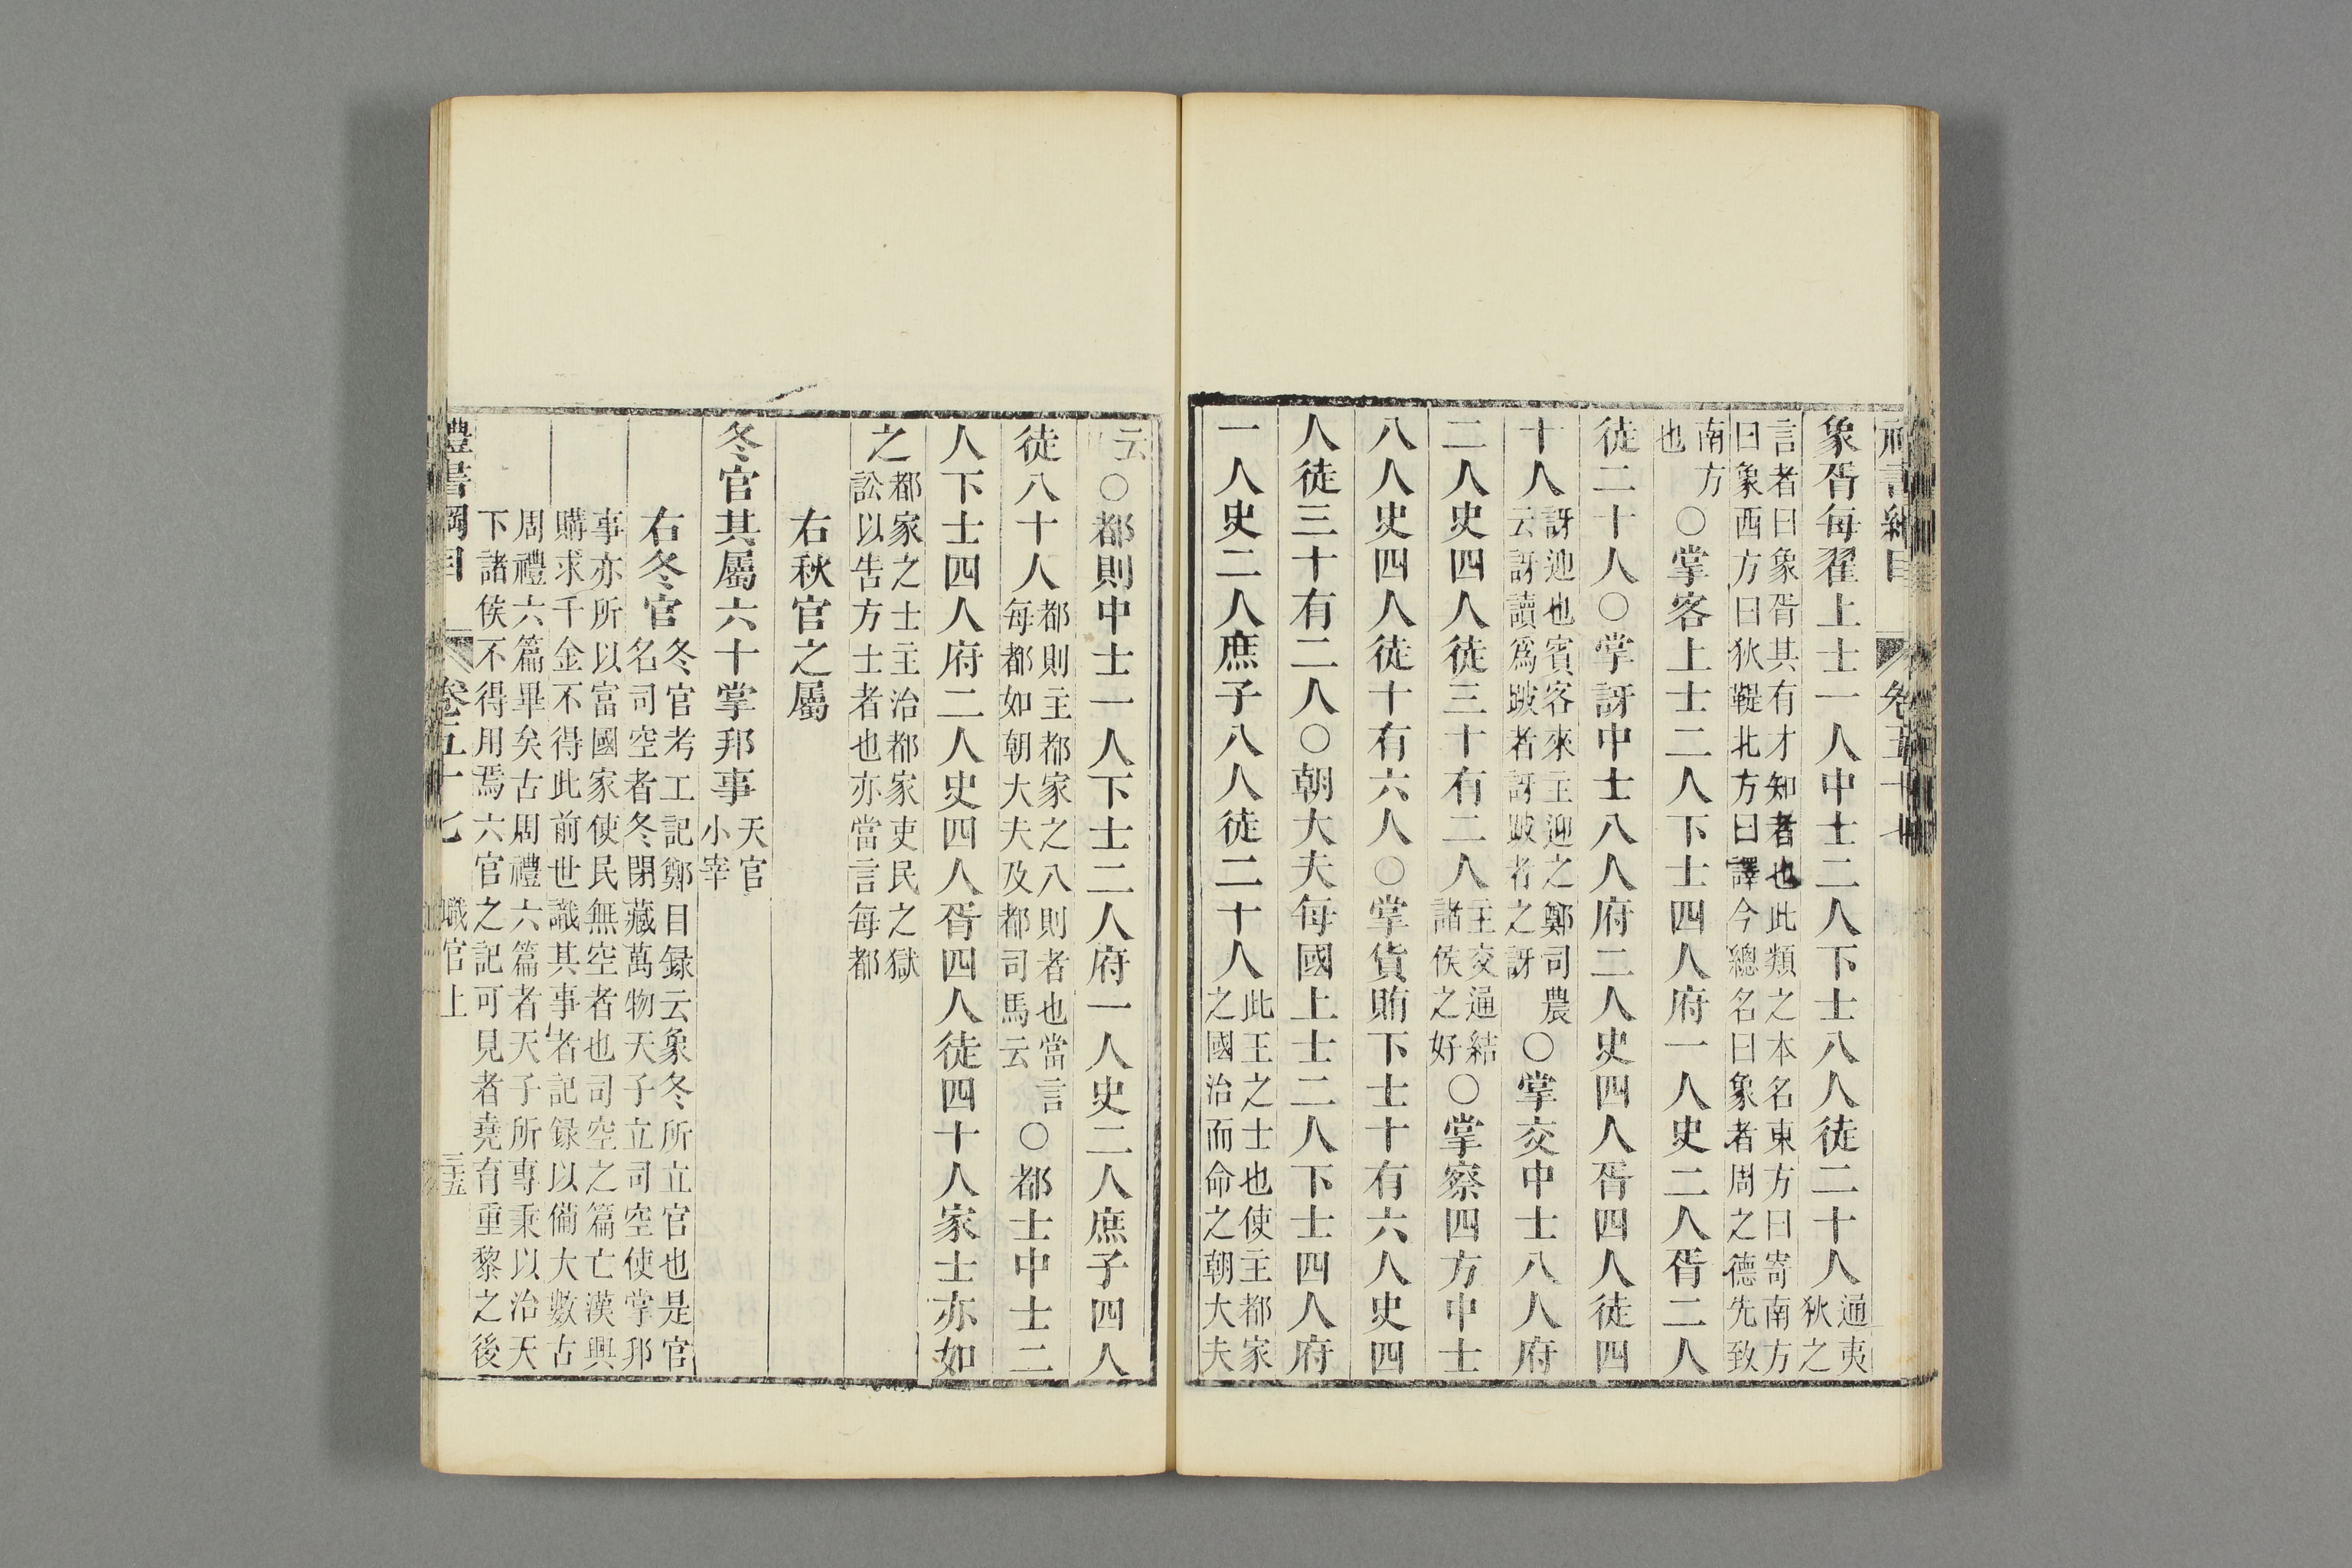 象胥每翟上士一人中士二人下士八人徒二十人通夷狄之
言者曰象胥其有才知者也此類之本名東方曰寄南方
曰象西方曰狄鞮北方曰譯今總名曰象者周之德先致
南方也○掌客上士二人下士四人府一人史二人胥二人
徒二十人○掌訝中士八人府二人史四人胥四人徒四
十人訝迎也賓客來主迎之鄭司農云訝讀爲跛者訝跛者之訝○掌交中士八人府
二人史四人徒三十有二人主交通結諸侯之好○掌察四方中士
八人史四人徒十有六人○掌貨賄下士十有六人史四
人徒三十有二人○朝大夫每國上士二人下士四人府
一人史二人庶子八人徒二十人此王之士也使主都家之國治而命之朝大夫
云○都則中士一人下士二人府一人史二人庶子四人
徒八十人都則主都家之八則者也當言每都如朝大夫及都司馬云○都士中士二
人下士四人府二人史四人胥四人徒四十人家士亦如
之都家之士主治都家吏民之獄訟以告方士者也亦當言每都
右秋官之屬
冬官其屬六十掌邦事天官小宰
右冬官冬官考工記鄭目録云象冬所立官也是官名司空者冬閉藏萬物天子立司空使掌邦
事亦所以富國家使民無空者也司空之篇亡漢興
購求千金不得此前世識其事者記録以備大數古
周禮六篇畢矣古周禮六篇者天子所專秉以治天
下諸侯不得用焉六官之記可見者堯育重黎之後
禮書綱目 卷五十七 職官上 三五